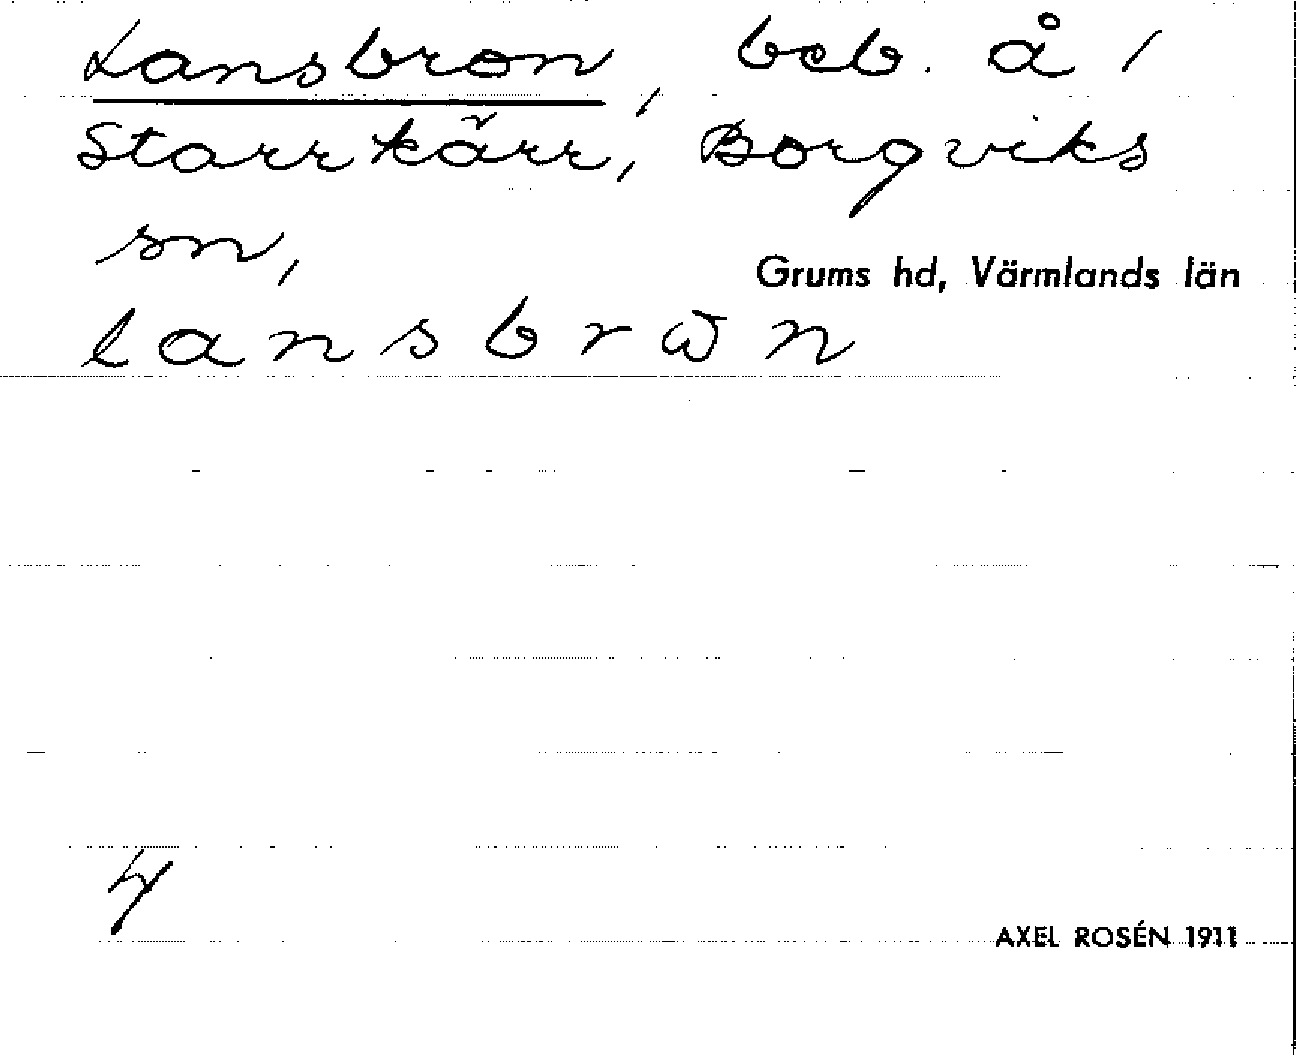 Lansbron, beb. å /
Starrkärr, Borgviks
sn,
Grums hd, Värmlands län
lansbrωn
4
AXEL ROSÉN 1911